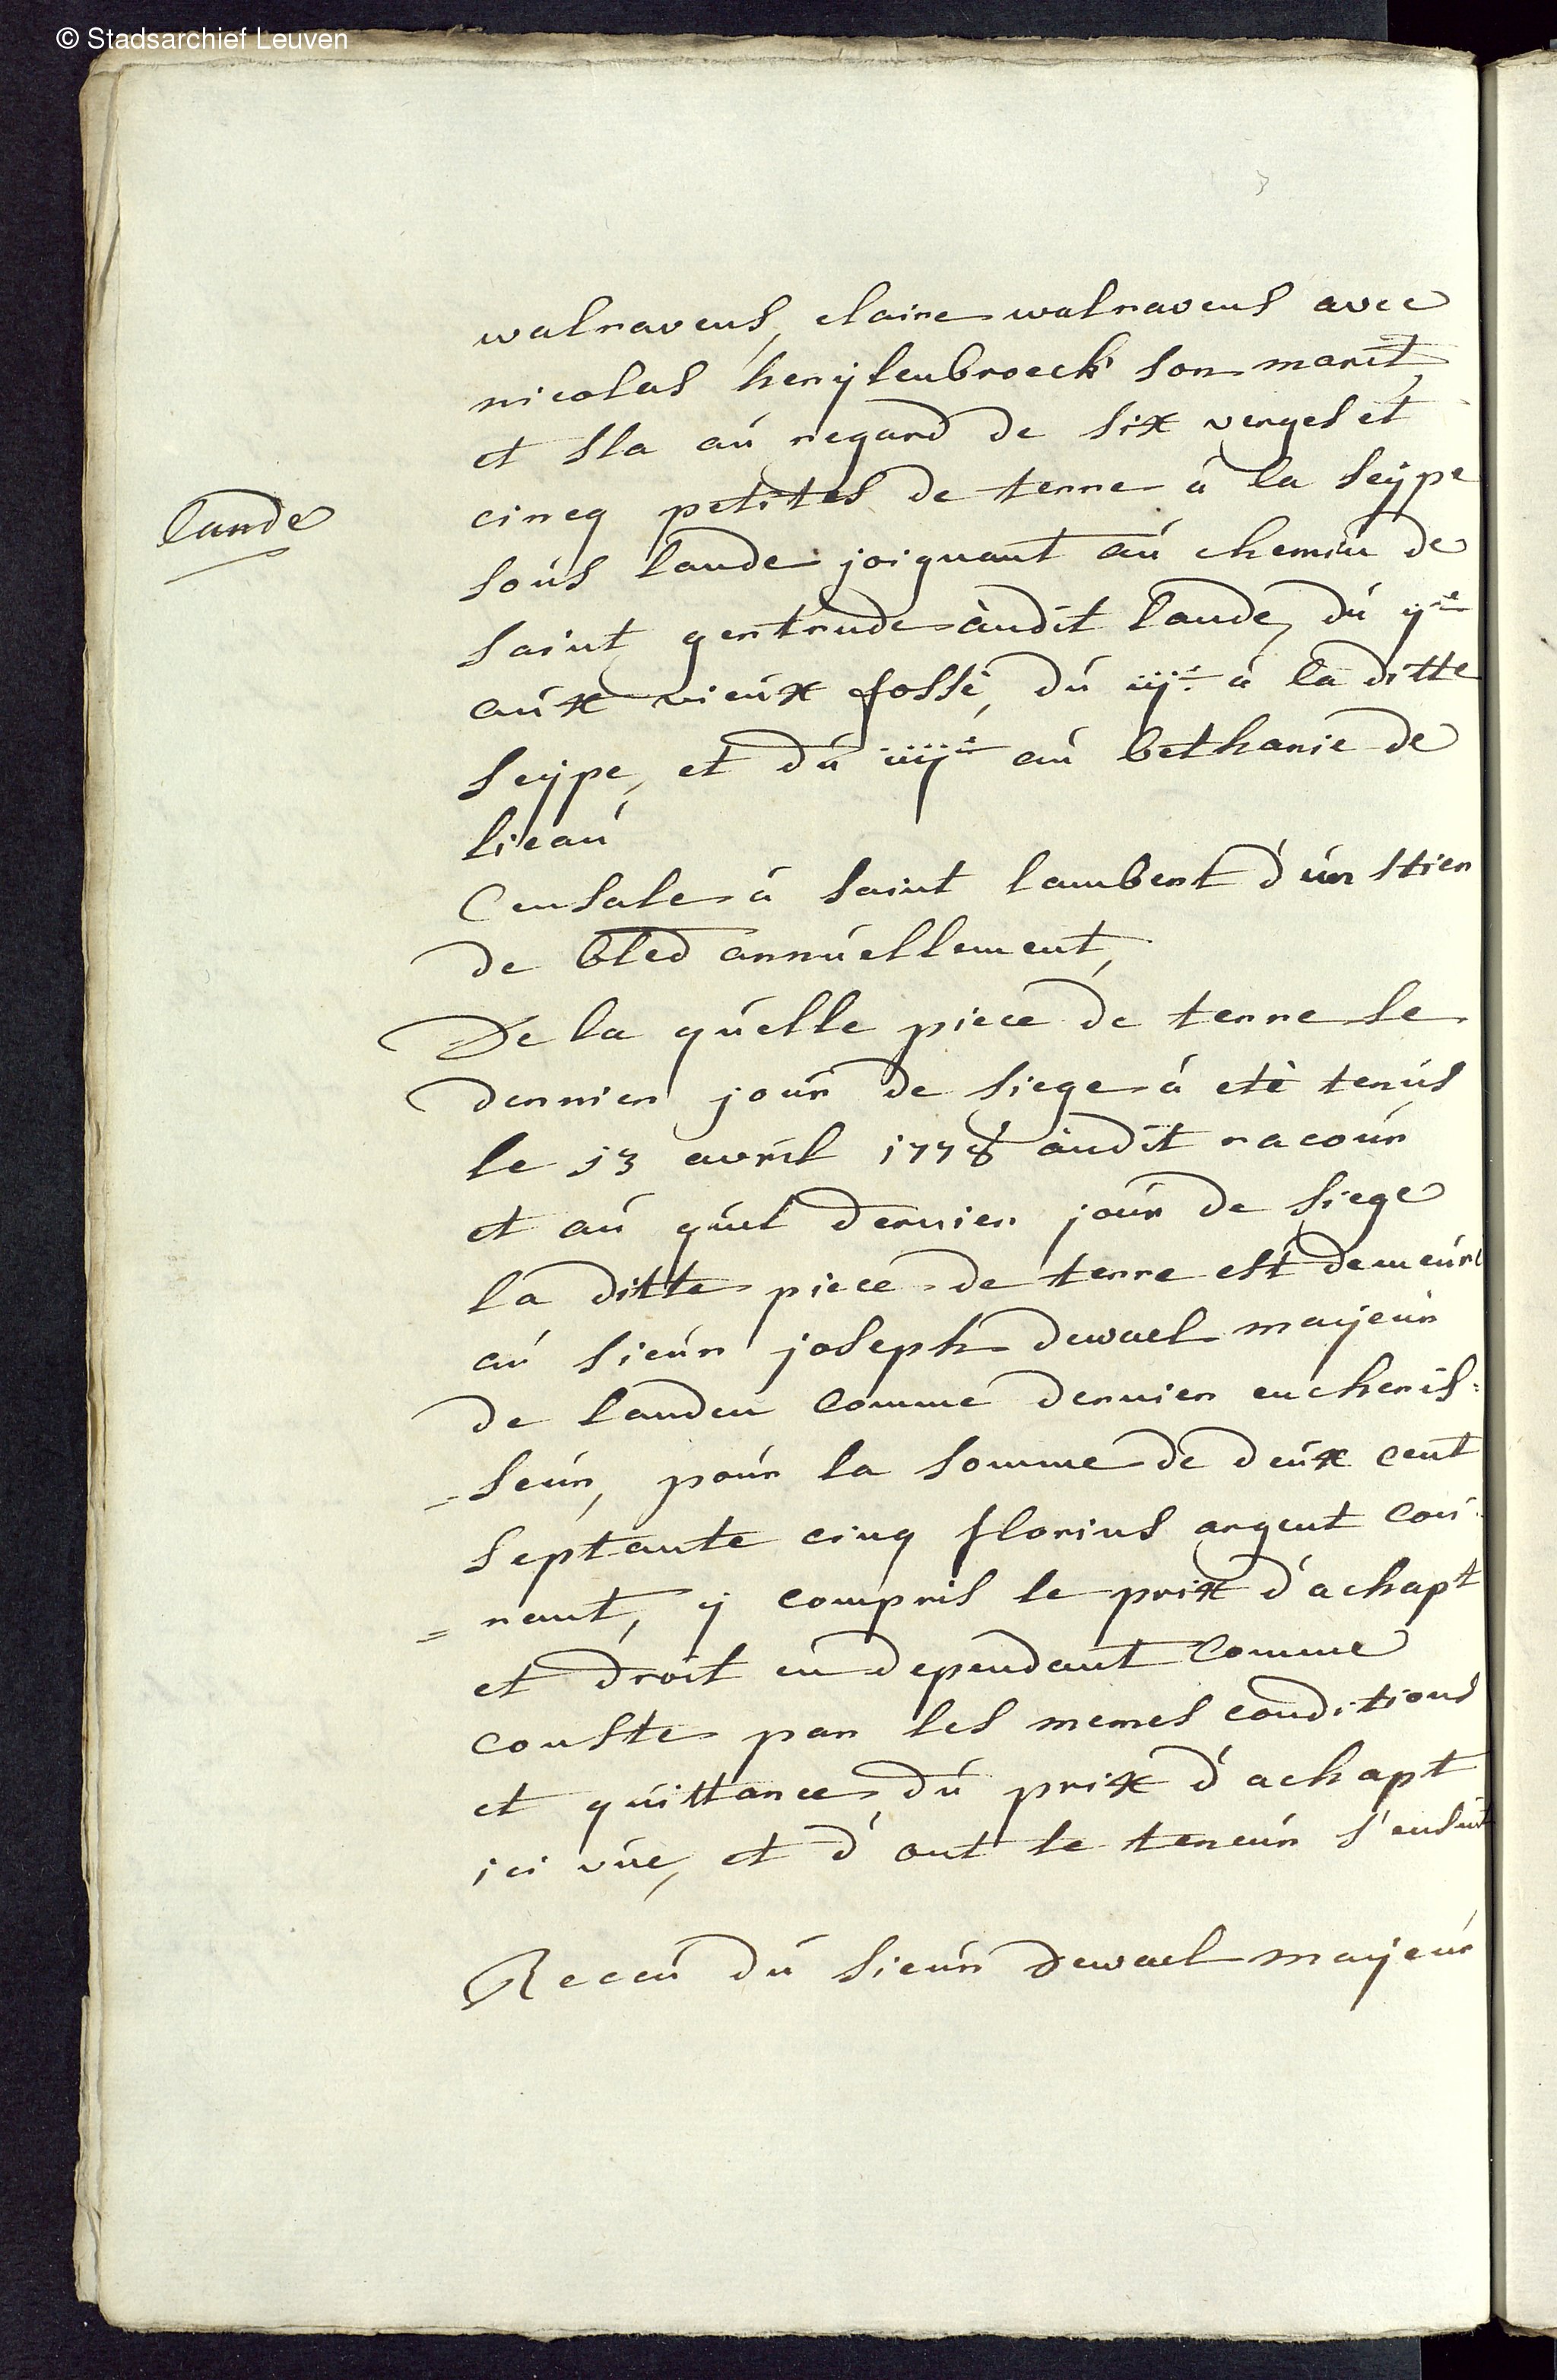 © Stadsarchief Leuven
walravens, claire walravens avec
nicolas herijlenbroeck son marit,
et sla aú regard de six verges et
cincq petites de terre á la seijpe
lande
soús lande joignant aú chemin de
saint gertrude audit lande, dú ije
aúx vieúx fossé, dú iije á la ditte
seijpe, et dú iiije aú bethanie de
lieaú
Censale á saint lambert d'ún stier
de bled annúellement,
De la qúelle piece de terre le
dernier joúr de siege á eté tenús
le 13 avril 1778 audit racoúr
et aú qúel dernier joúr de siege
la ditte piece de terre est demeúré
aú sieúr joseph dewael maijeúr
de landen comme dernier encheris=
=seúr, poúr la somme de deúx cent
septante cinq florins argent coú=
=rant, ij compris le prix d'achapt
et droit en dependant comme
conste par les memes conditions
et qúittance dú prix d'achapt
ici vúe, et d'ont le teneúr s'ensúit
Receú dú sieúr dewael maijeúr